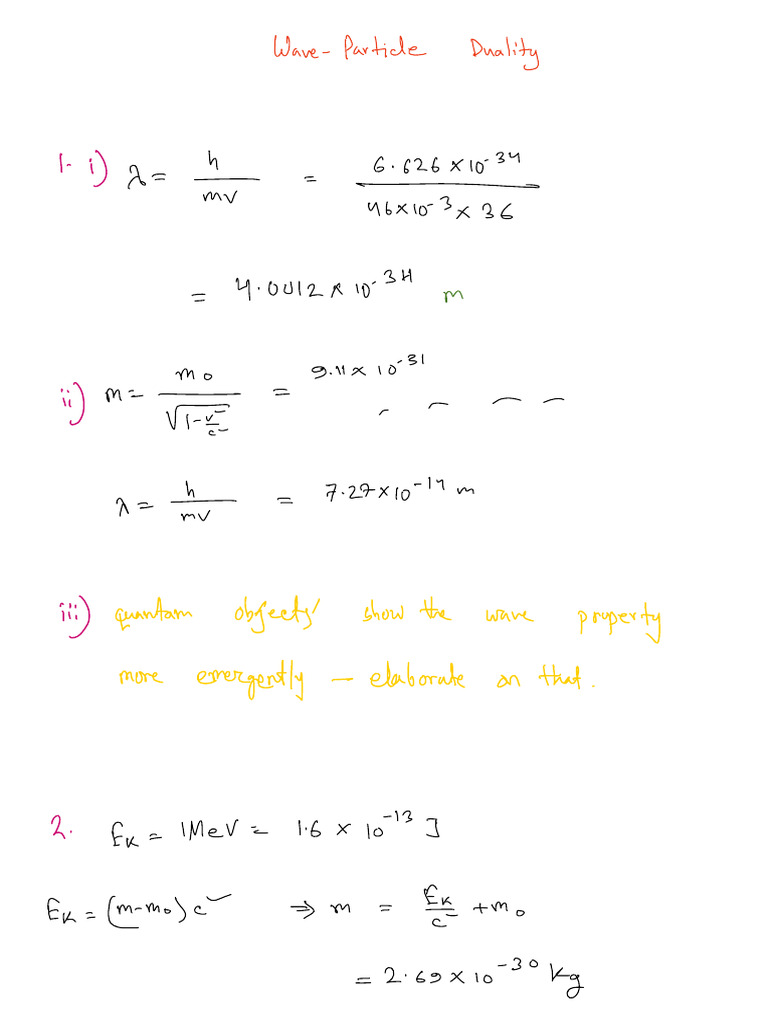 Wave-Particle Duality
1. i) λ = h / mv = 6.626 × 10^-34 / 46×10^-3 × 36
= 4.0012 × 10^-34 m
ii) m = m₀ / √(1 - v²/c²) = 9.11 × 10^-31
λ = h / mv = 7.27×10^-14 m
iii) quantam objects' show the wave property
more emergently – elaborate on that.
2. E_K = 1MeV = 1.6 × 10^-13 J
E_K = (m-m₀)c² ⇒ m = E_K / c² + m₀
= 2.69 × 10^-30 Kg